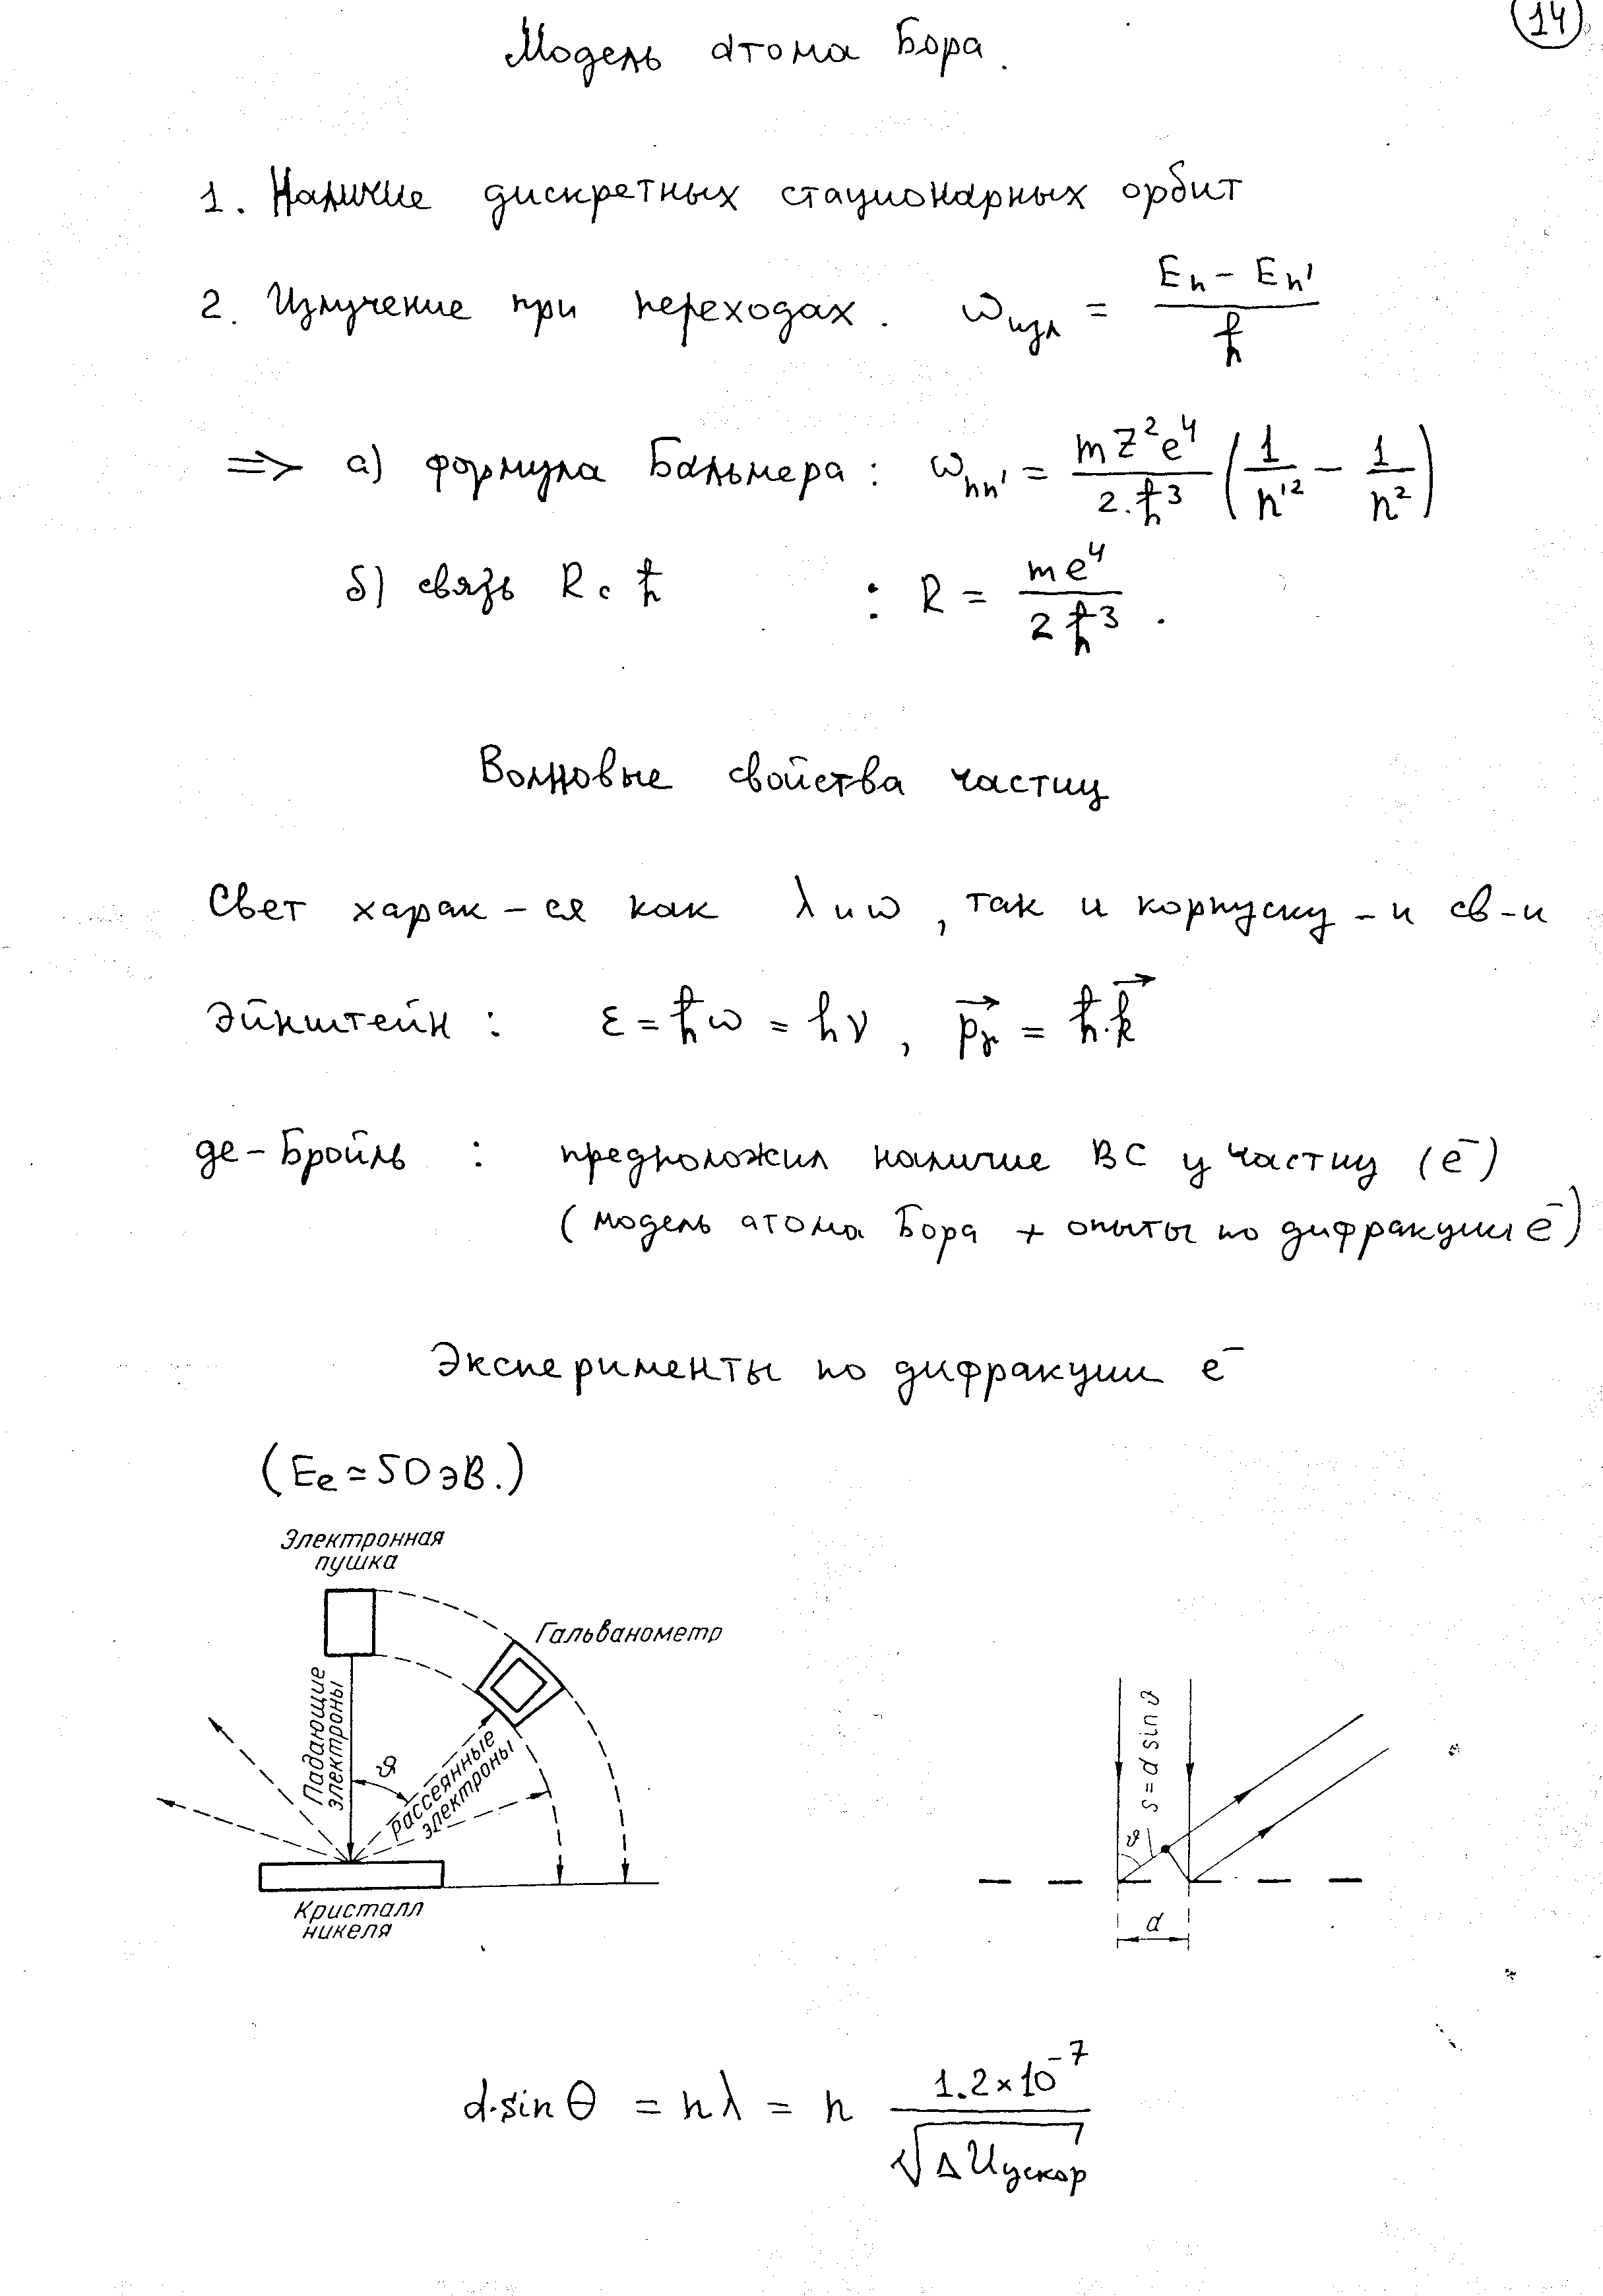 14
Модель атома Бора.
1. Наличие дискретных стационарных орбит
2. Излучение при переходах. ω_изл = (E_n − E_n') / ħ
=> а) формула Бальмера : ω_nn' = (mZ²e⁴ / 2·ħ³) (1/n'² − 1/n²)
б) связь R с ħ : R = me⁴ / 2ħ³ .
Волновые свойства частиц
Свет харак-ся как λ и ω, так и корпуску-и св-и
Эйнштейн : ε = ħω = hν, p⃗_γ = ħ·k⃗
де-Бройль : предположил наличие ВС у частиц (e⁻)
(модель атома Бора + опыты по дифракции e⁻)
Эксперименты по дифракции e⁻
(Ee ≃ 50 эВ.)
Электронная
пушка
Гальванометр
Падающие
электроны
ϑ
Рассеянные
электроны
Кристалл
никеля
s = d sin ϑ
ϑ
d
d·sin θ = nλ = n 1.2×10⁻⁷ / √ΔU_ускор